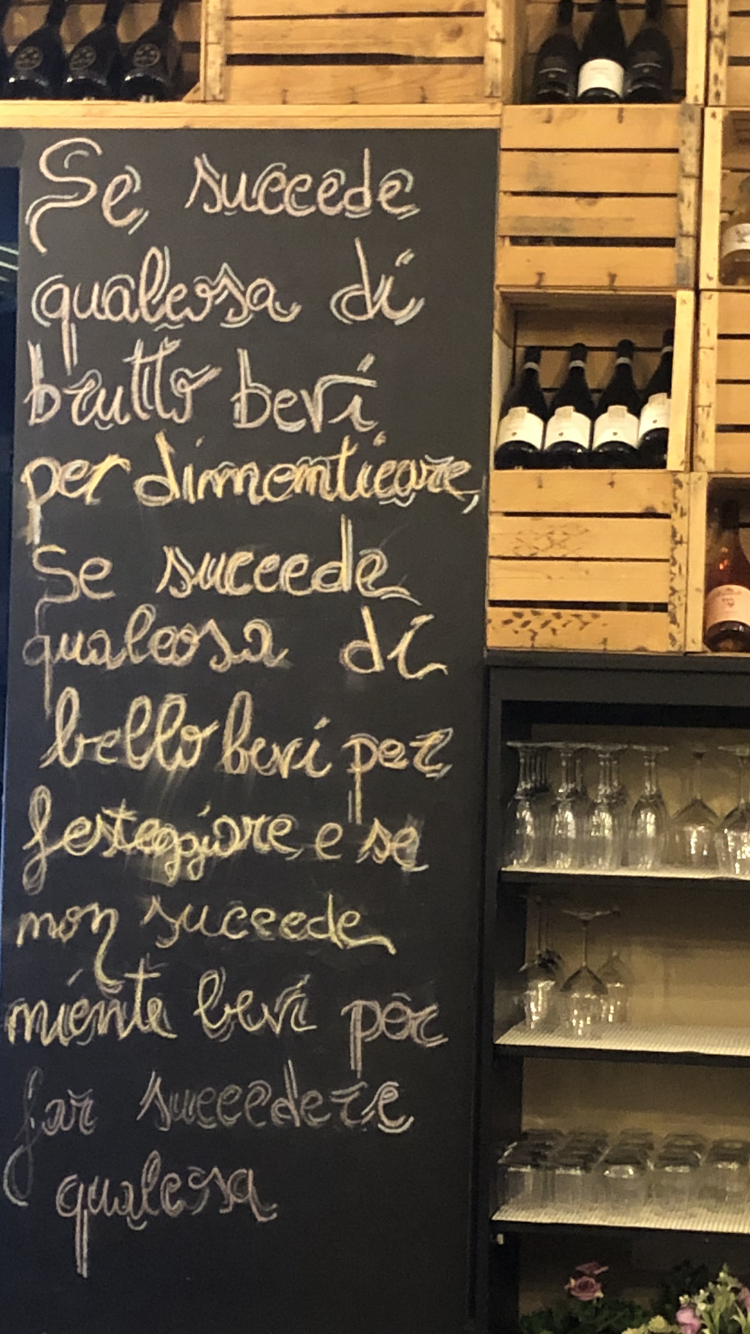 Se succede
qualcosa di
brutto bevi
per dimenticare,
Se succede
qualcosa di
bello bevi per
festeggiare e se
non succede
niente bevi per
far succedere
qualcosa